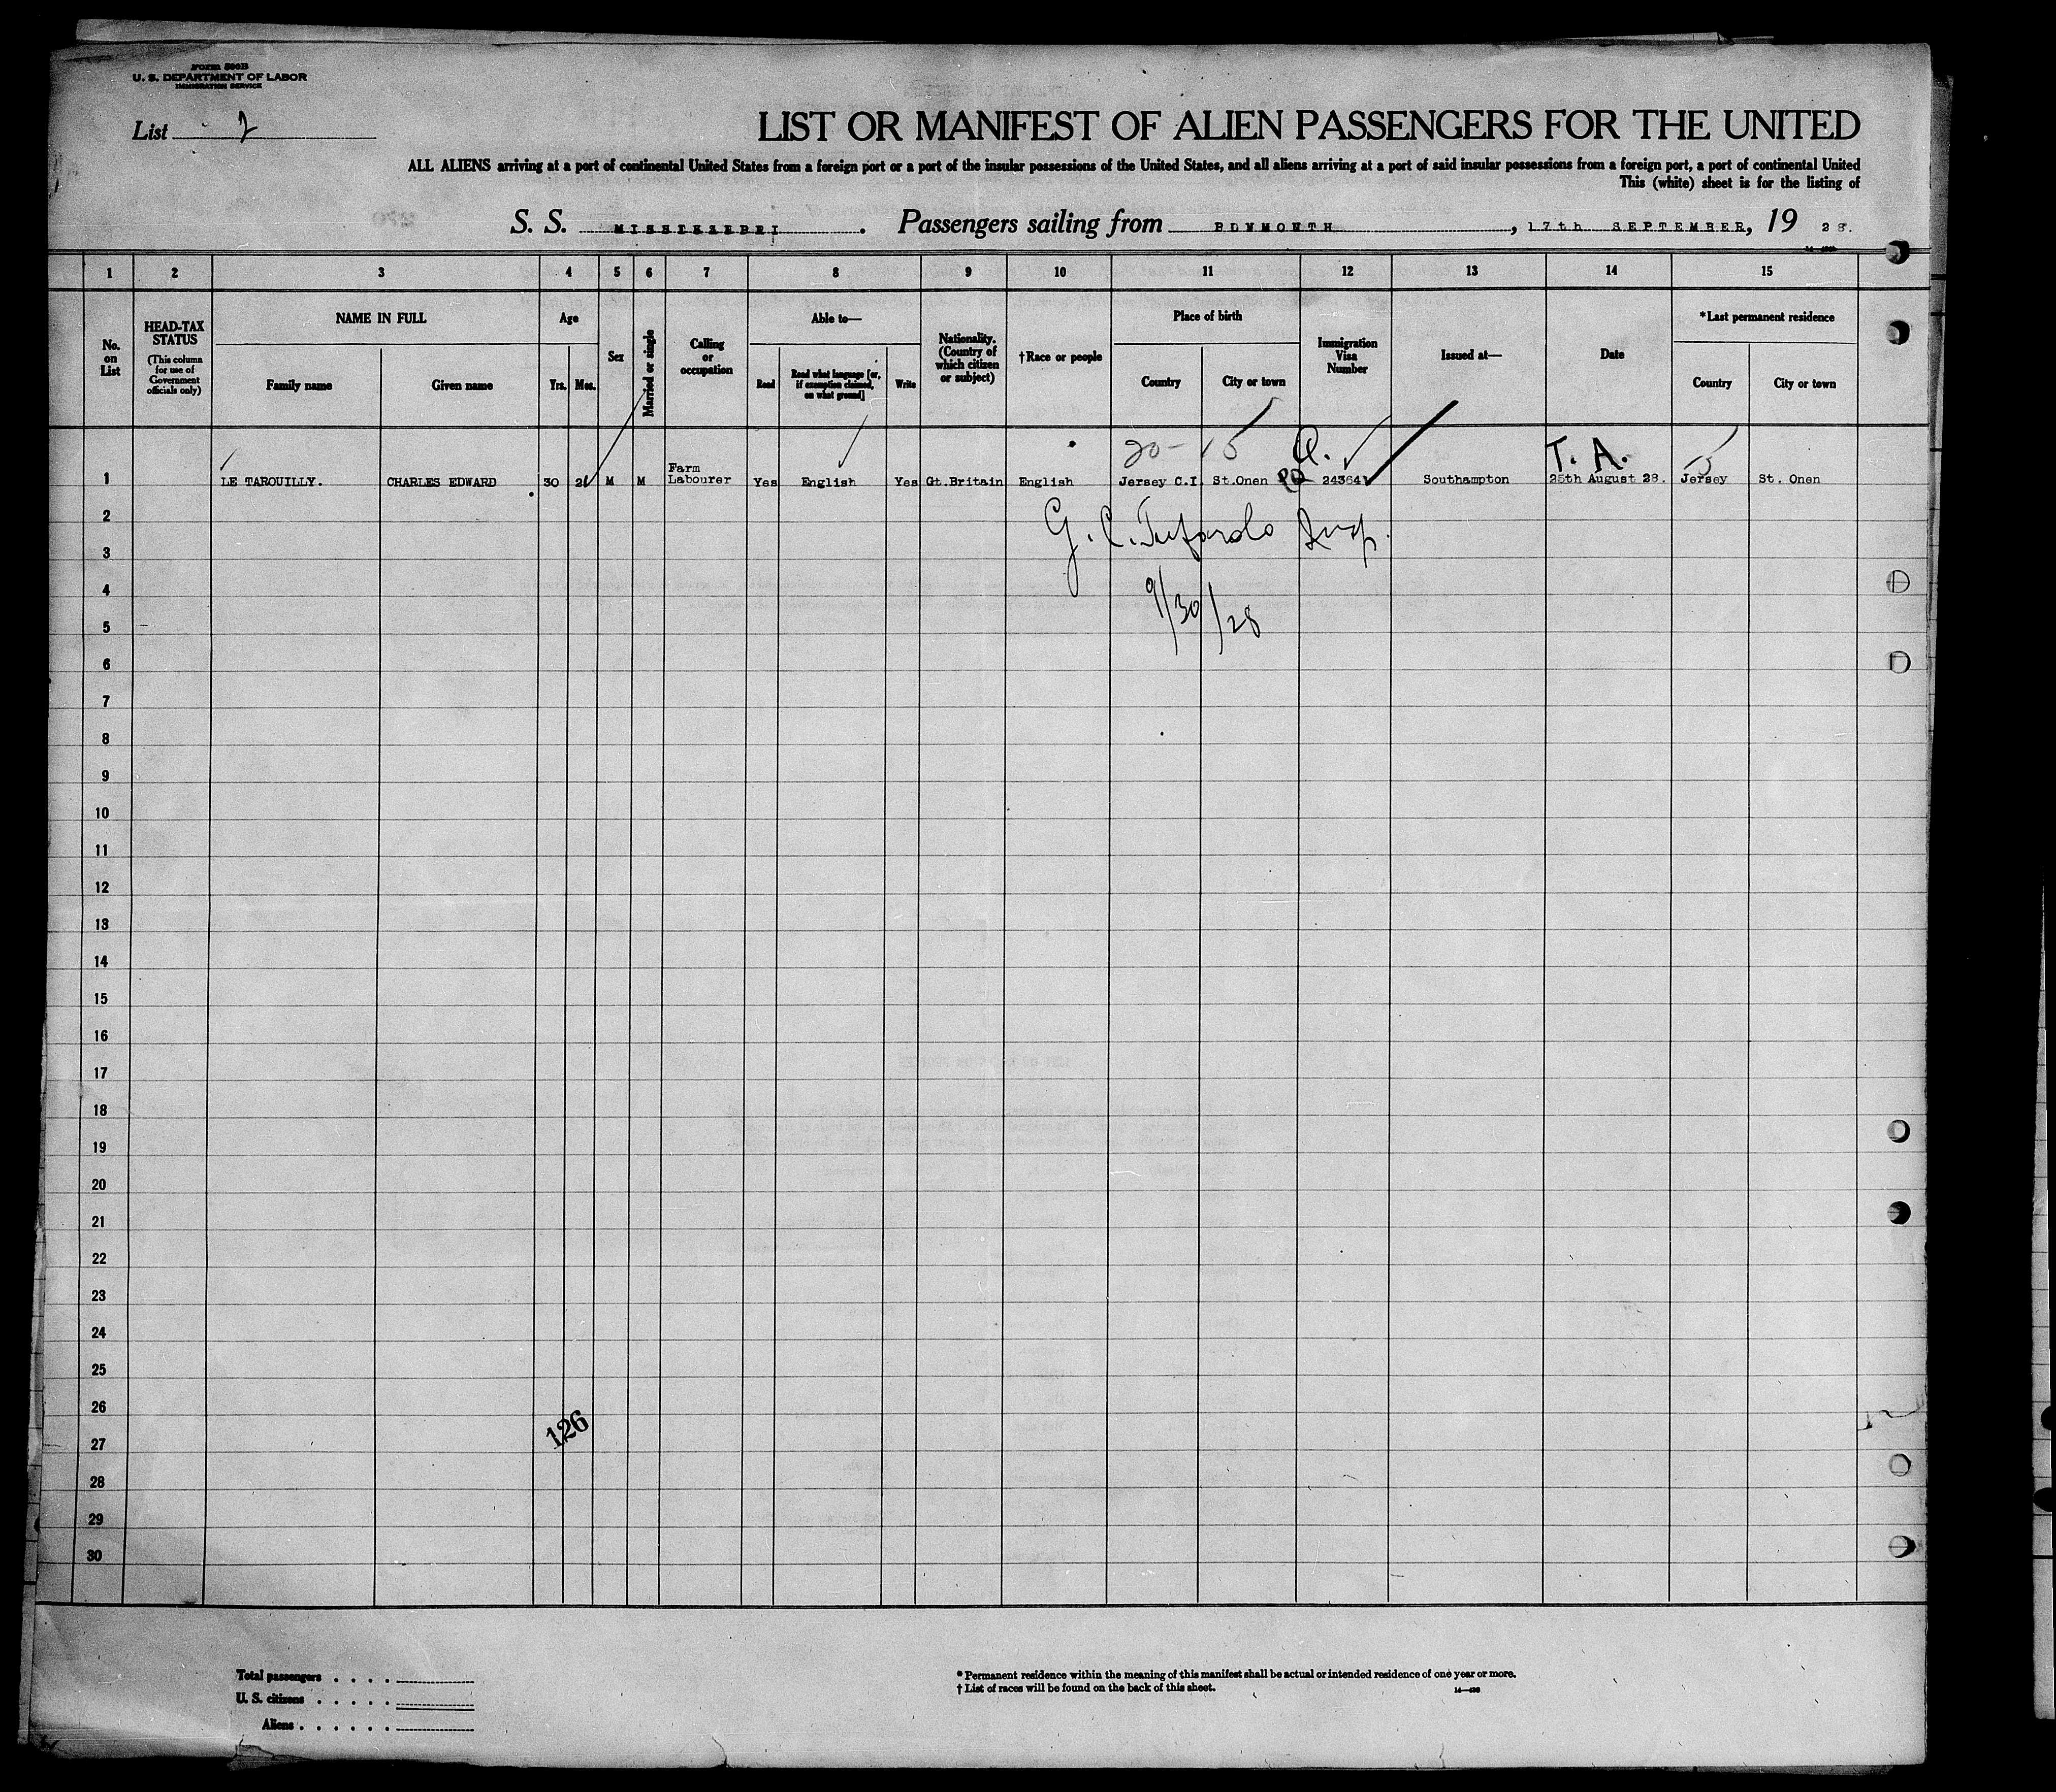 Form 500B
U. S. DEPARTMENT OF LABOR
IMMIGRATION SERVICE
List 2
LIST OR MANIFEST OF ALIEN PASSENGERS FOR THE UNITED
ALL ALIENS arriving at a port of continental United States from a foreign port or a port of the insular possessions of the United States, and all aliens arriving at a port of said insular possessions from a foreign port, a port of continental United
This (white) sheet is for the listing of
S. S. MISSISSIPPI. Passengers sailing from PLYMOUTH, 17th SEPTEMBER, 19 28.
1 2 3 4 5 6 7 8 9 10 11 12 13 14 15
No. on List
HEAD-TAX STATUS
(This column for use of Government officials only)
NAME IN FULL
Family name
Given name
Age
Yrs. Mos.
Sex
Married or single
Calling or occupation
Able to—
Read
Read what language [or, if exemption claimed, on what ground]
Write
Nationality. (Country of which citizen or subject)
†Race or people
Place of birth
Country
City or town
Immigration Visa Number
Issued at—
Date
*Last permanent residence
Country
City or town
20-15 Q. T. A.
1 LE TAROUILLY. CHARLES EDWARD 30 M M Farm Labourer Yes English Yes Gt.Britain English Jersey C.I. St.Onen 24364 Southampton 25th August 28. Jersey St. Onen
2
G. C. Insp.
3
4
9/30/28
5
6
7
8
9
10
11
12
13
14
15
16
17
18
19
20
21
22
23
24
25
26
126
27
28
29
30
Total passengers . . . .
U. S. citizens . . . . .
Aliens . . . . . .
* Permanent residence within the meaning of this manifest shall be actual or intended residence of one year or more.
† List of races will be found on the back of this sheet.